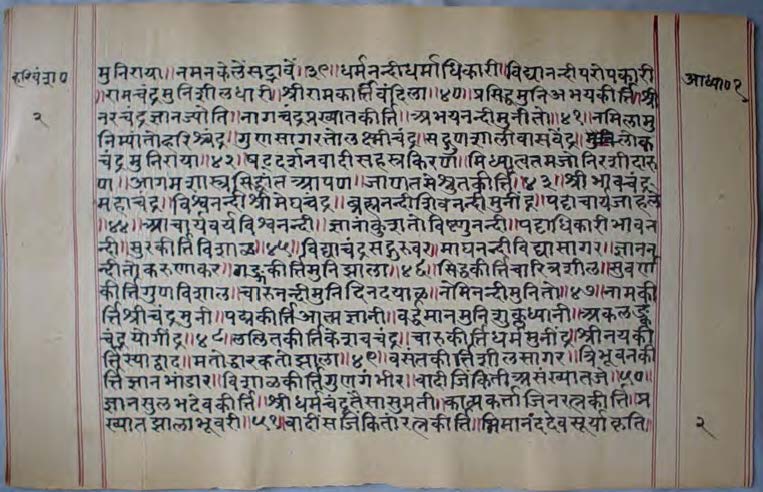 हरिवंश प०
२
आध्या० १
मुनिराया॥नमनकेलेंसद्भावें॥३९॥धर्मनन्दीधर्माधिकारी॥विद्यानन्दीपरोपकारी
॥रामचंद्रमुनिशीलधारी॥श्रीरामकीर्त्तिवंदिला॥४०॥प्रसिद्धमुनिअभयकीर्त्ति॥श्री
नरचंद्रज्ञानज्योति॥नागचंद्रप्रख्यातकीर्त्ति॥अभयनन्दीमुनीतो॥४१॥नमिलामु
निम्यांतोहरिश्चंद्र॥गुणसागरतोलक्ष्मीचंद्र॥सद्गुणशालीवासवेंद्र॥लोक
चंद्रमुनिराया॥४२॥षट्दर्शनवादीसहस्रकिरण॥मिथ्यात्वतमजोनिरशीदारु
ण॥आगमशास्त्रसिद्धांतआपण॥जाणतसेश्रुतकीर्त्ति॥४३॥श्रीभावचंद्र
महाचंद्र॥विश्वनन्दीश्रीमेघचंद्र॥ब्रह्मनन्दीशिवनन्दीमुनींद्र॥पट्टाचार्यजाहले
॥४४॥आचार्यवर्यविश्वनन्दी॥ज्ञानांकुशतोविष्णुनन्दी॥पट्टाधिकारीभावन
न्दी॥सुरकीर्तिविशाळ॥४५॥विद्याचंद्रसद्गुरुवर॥माघनन्दीविद्यासागर॥ज्ञानन
न्दीतोकरुणाकर॥गङ्गकीर्तिमुनिझाला॥४६॥सिंहकीर्त्तिचारित्रशील॥सुवर्ण
कीर्त्तिगुणविशाल॥चारुनन्दीमुनिदिनदयाळ॥नेमिनन्दीमुनितो॥४७॥नामकी
र्त्तिश्रीचंद्रमुनी॥पद्मकीर्त्तिआत्मज्ञानी॥वर्द्धमानमुनिशुक्लध्यानी॥अकलङ्क
चंद्रयोगींद्र॥४८॥ललितकीर्त्तिकेशवचंद्र॥चारुकीर्त्तिधर्ममुनींद्र॥श्रीनयकी
र्त्तिस्याद्वाद॥मतोद्धारकतोझाला॥४९॥वसंतकीर्त्तिशीलसागर॥त्रिभूवनकी
र्त्तिज्ञानभांडार॥विशाळकीर्त्तिगुणगंभीर॥वादीजिंकितीअसंख्यातजे॥५०॥
ज्ञानसुलभदेवकीर्त्ति॥श्रीधर्मचंद्रतैसासुमती॥काव्यकर्त्ताजिनरत्नकीर्त्ति॥प्र
ख्यातझालाभूवरी॥५१॥वादीसजिंकितोरत्नकीर्त्ति॥देवसूर्याकृति॥
२